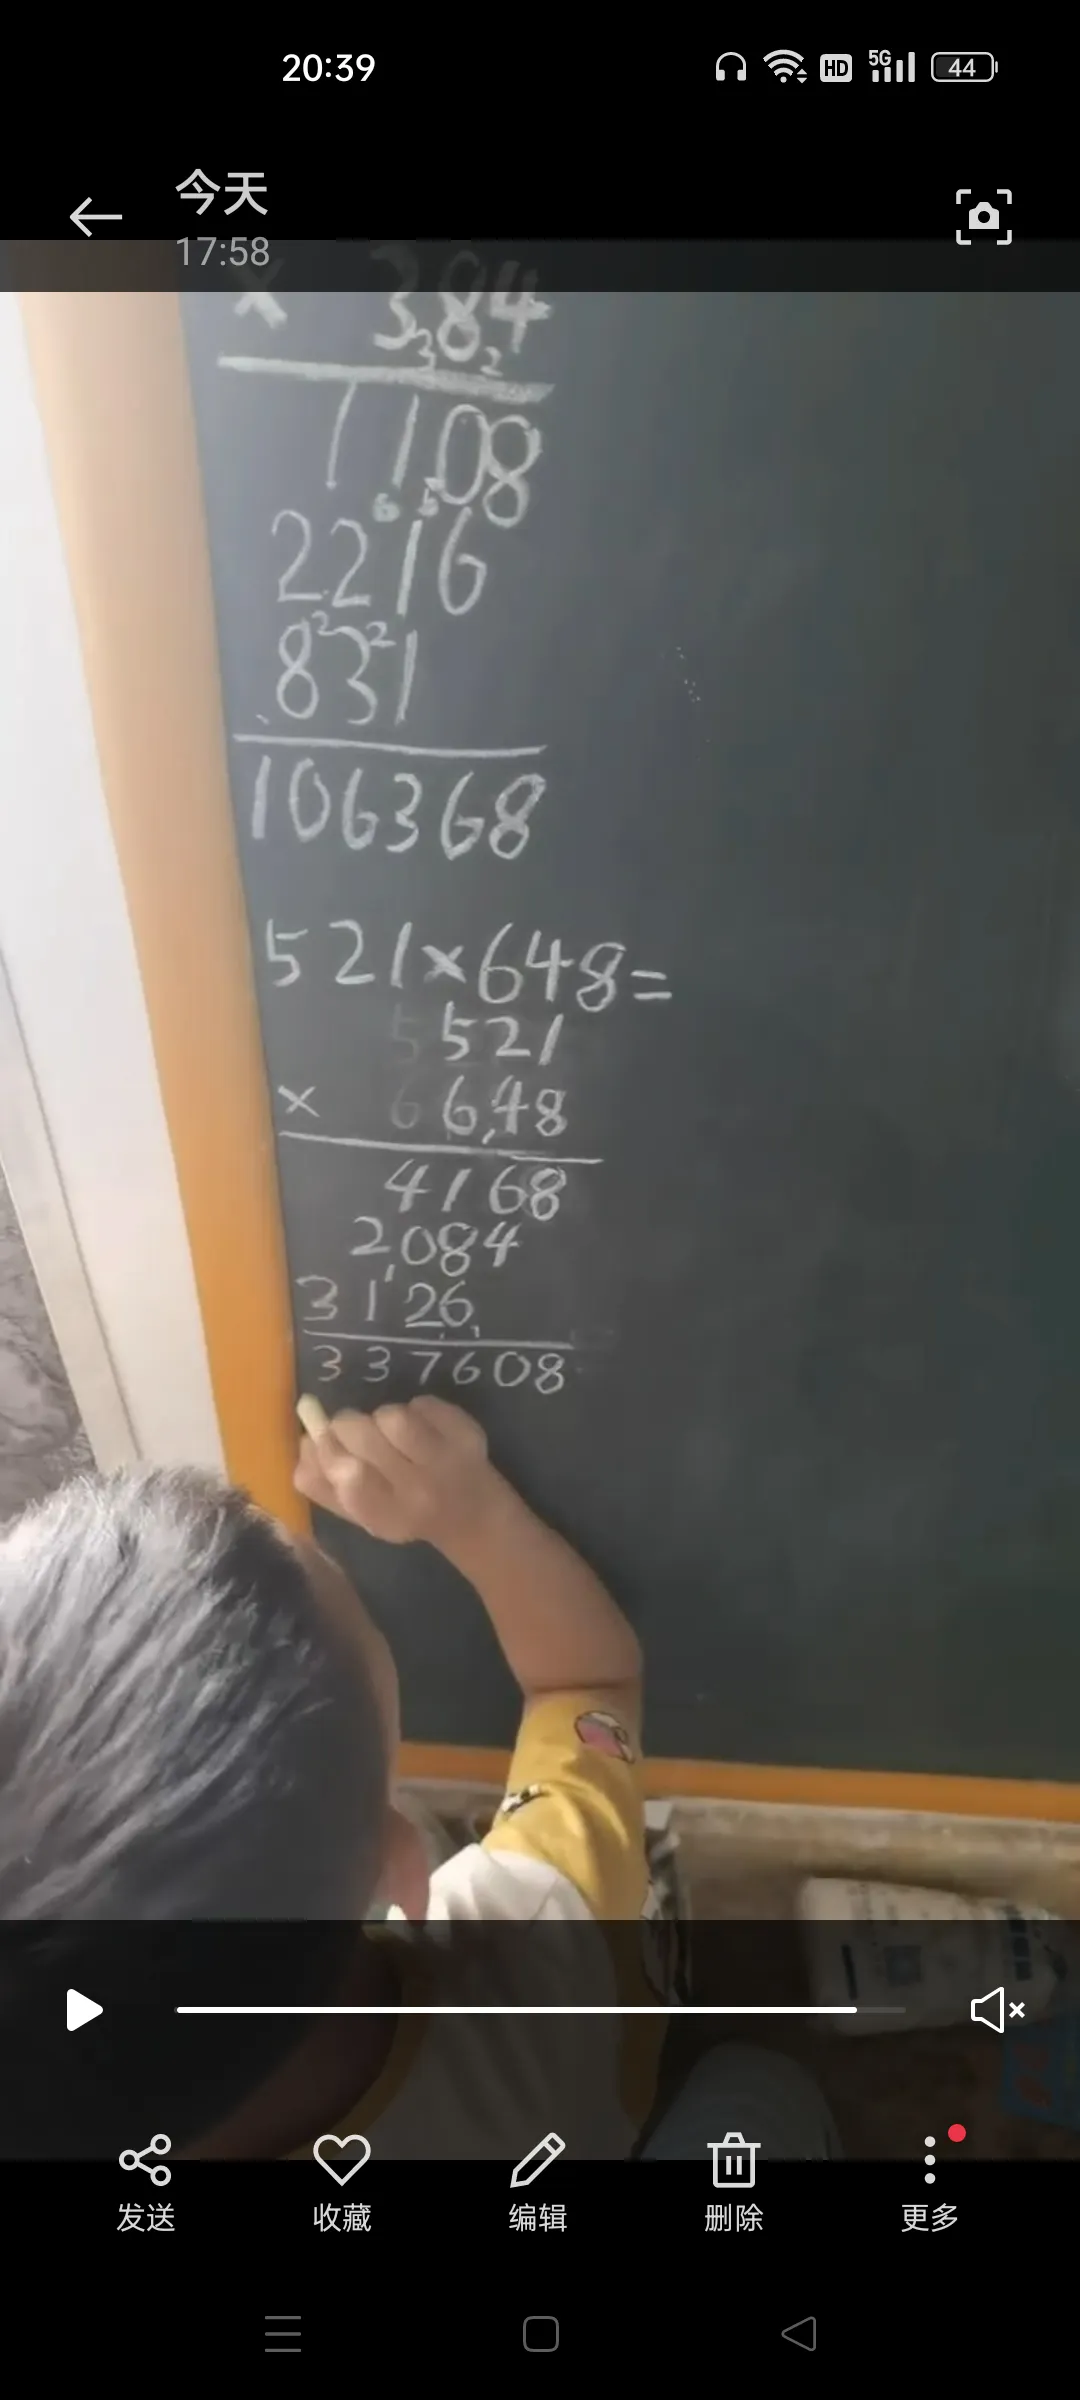 20:39
HD 5G 44
今天
17:58
× 384
3 2
1108
6 5
2216
2 2
831
106368
521×648=
521
× 648
4168
2084
3126
337608
发送 收藏 编辑 删除 更多